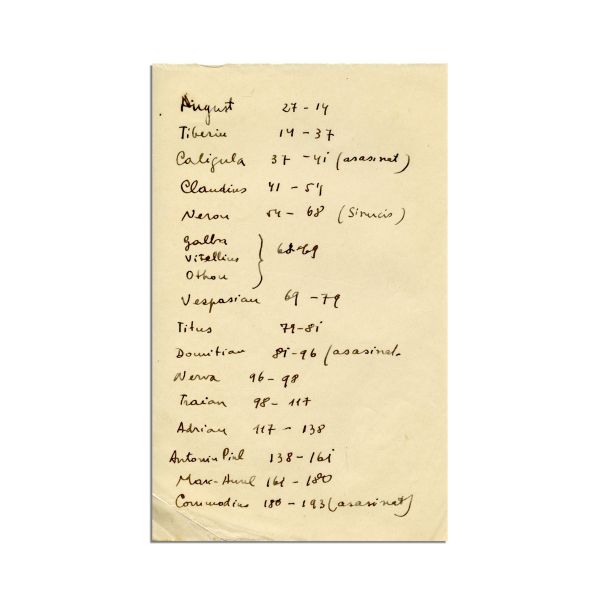 August 27-14
Tiberiu 14-37
Caligula 37-41 (asasinat)
Claudius 41-54
Neron 54-68 (Sinucis)
Galba
Vitellius } 68-69
Othon
Vespasian 69-79
Titus 79-81
Domitian 81-96 (asasinat
Nerva 96-98
Traian 98-117
Adrian 117-138
Antonin Piul 138-161
Marc-Aurel 161-180
Commodius 180-193 (asasinat)